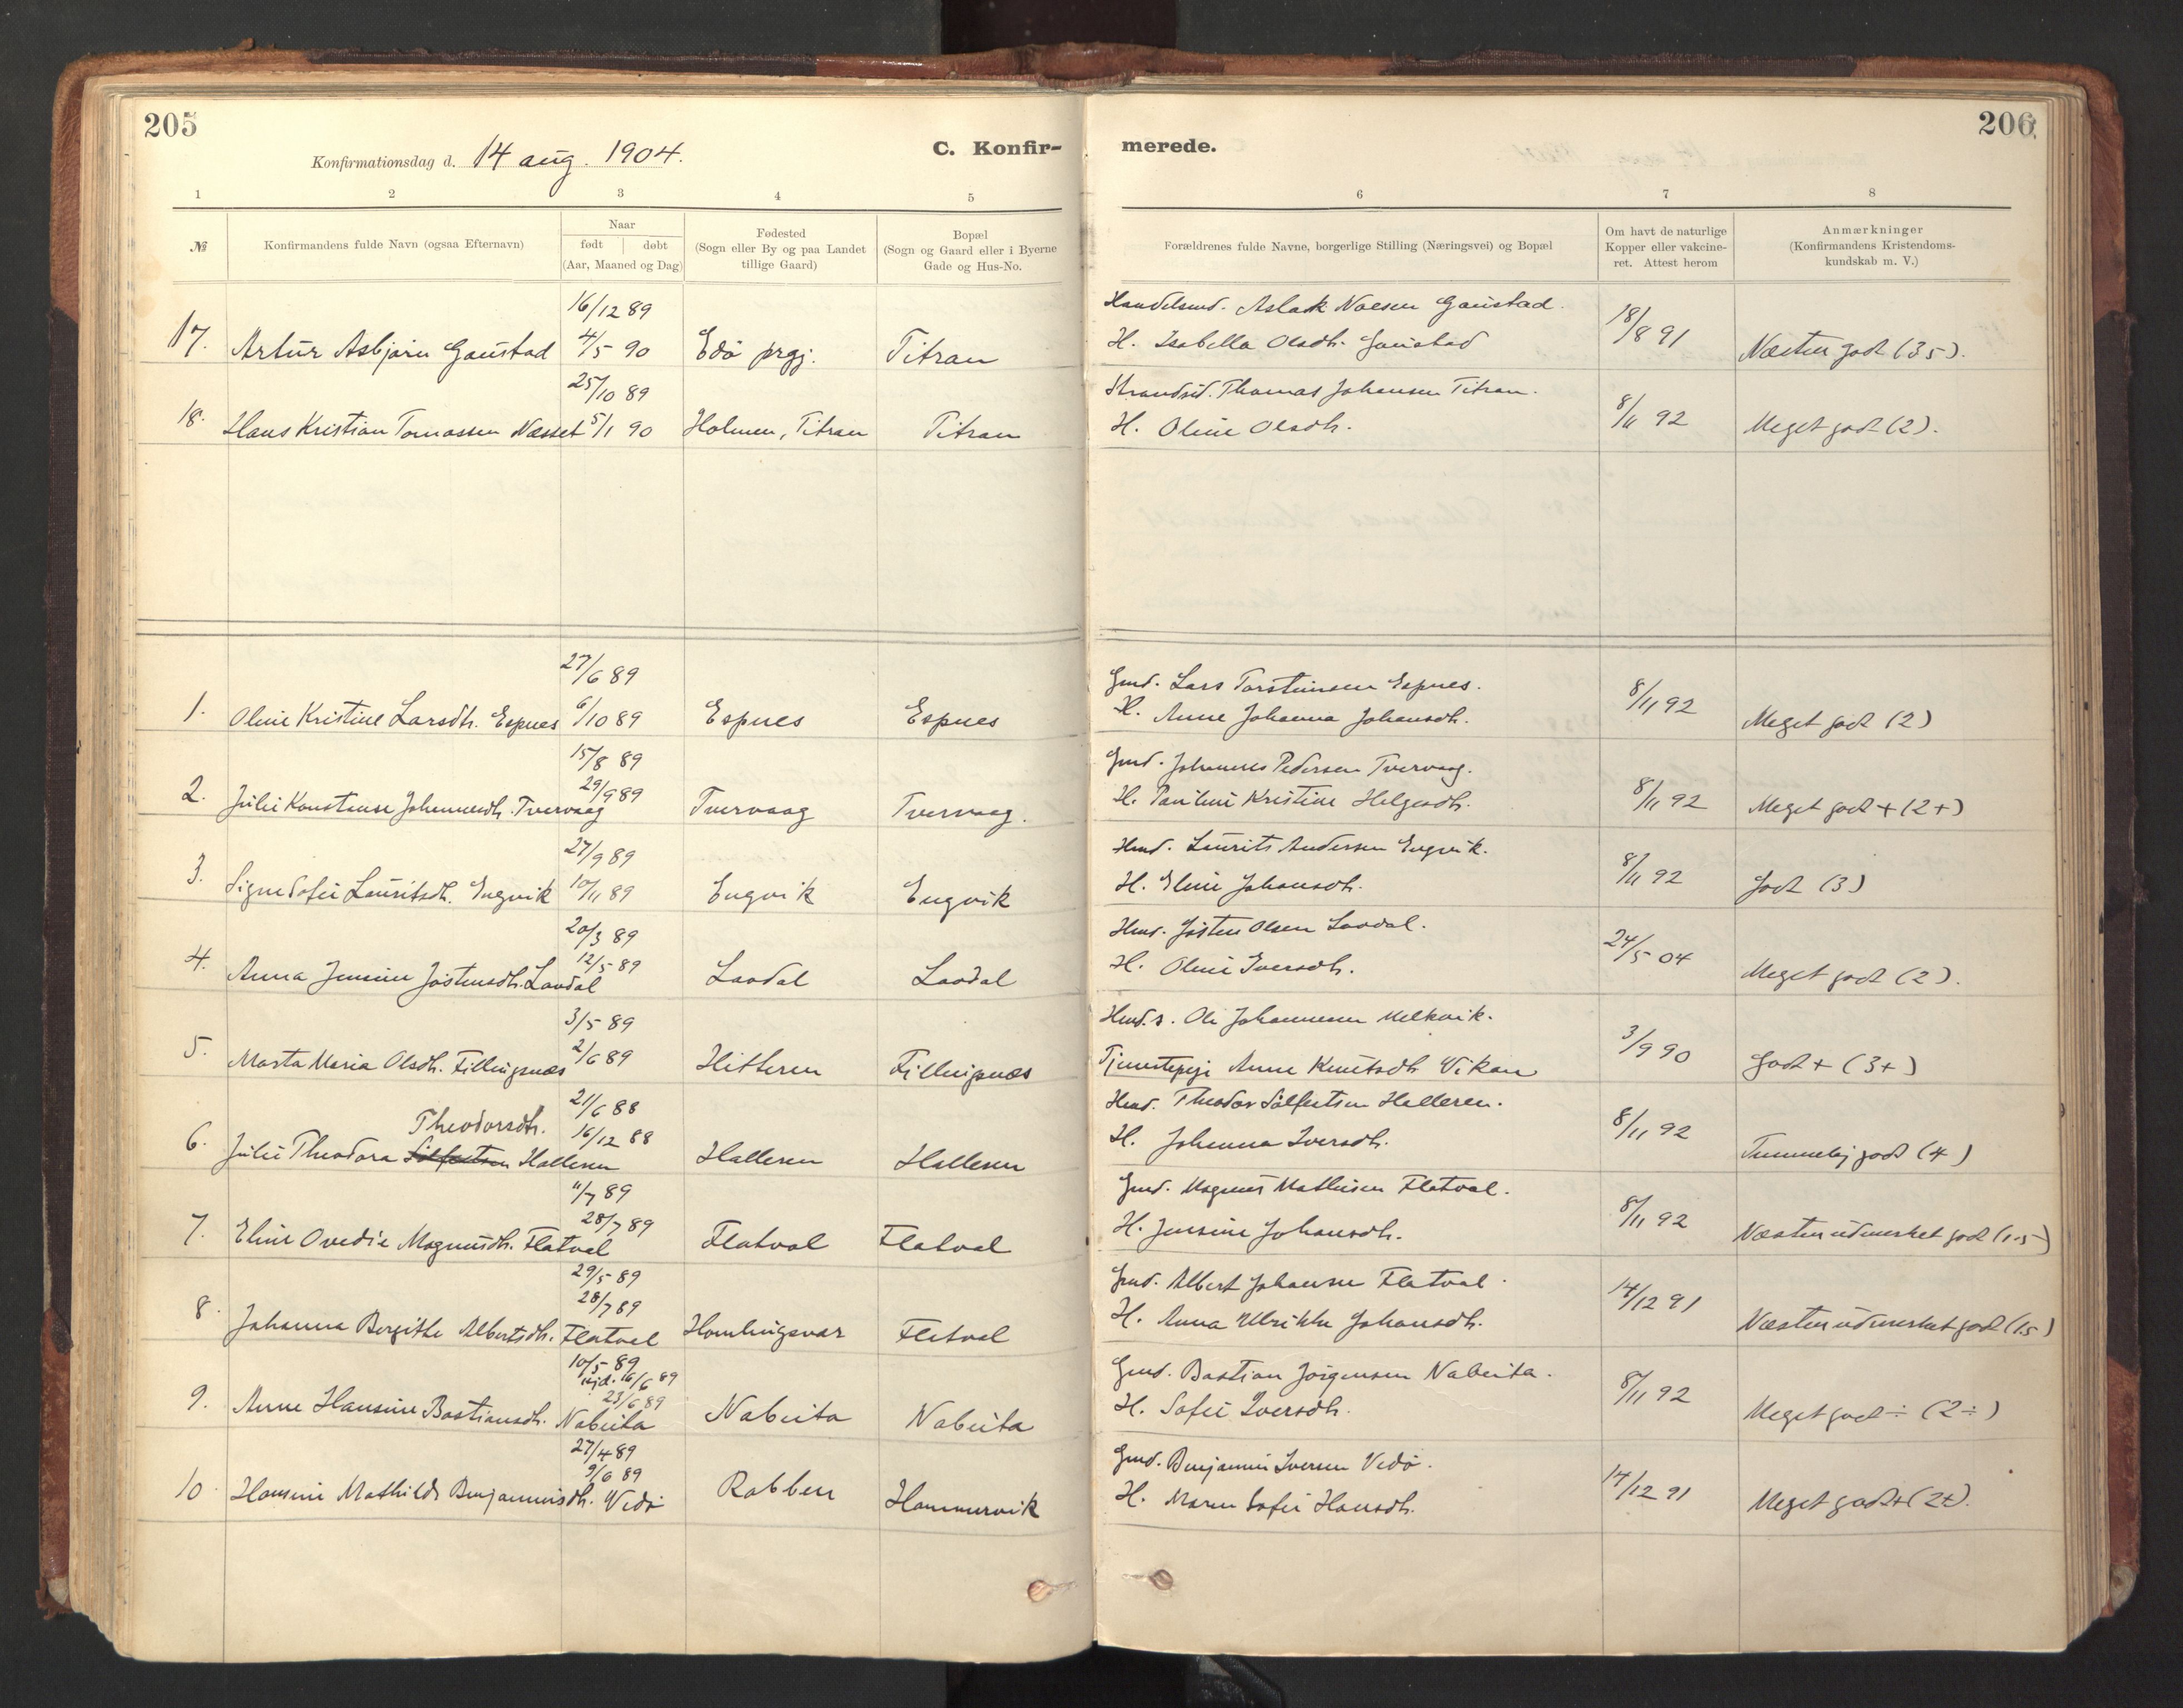 205
206
Konfirmationsdag d. 14 aug. 1904.
C. Konfir-
merede.
1 2 3 4 5 6 7 8
№
Konfirmandens fulde Navn (ogsaa Efternavn)
Naar
født døbt
(Aar, Maaned og Dag)
Fødested
(Sogn eller By og paa Landet
tillige Gaard)
Bopæl
(Sogn og Gaard eller i Byerne
Gade og Hus-No.
Forældrenes fulde Navne, borgerlige Stilling (Næringsvei) og Bopæl
Om havt de naturlige
Kopper eller vakcine-
ret. Attest herom
Anmærkninger
(Konfirmandens Kristendoms-
kundskab m. V.)
16/12 89 Handelsmd. Aslak Gaustad.
17. Artur Asbjørn Gaustad 4/5 90 Edø prgj. Titran H. Isabella Olsdtr. Gaustad 18/8 91 Næsten godt (35).
25/10 89 Strandsid. Thomas Johansen Titran.
18. Hans Kristian Tomassen Næsset 5/1 90 Holmen, Titran Titran H. Oline Olsdtr. 8/11 92 Meget godt (2).
27/6 89 Gmd. Lars Torsteinsen Espnes.
1. Oline Kristine Larsdtr. Espnes 6/10 89 Espnes Espnes H. Anne Johanna Johansdtr. 8/11 92 Meget godt (2)
15/8 89 Gmd. Johannes Pedersen Tvervaag.
29/9 89
2. Julie Konstanse Johannesdtr. Tvervaag Tvervaag Tvervaag. H. Pauline Kristine Helgesdtr. 8/11 92 Meget godt + (2+)
27/9 89 Hmd. Laurits Andersen Engvik.
3. Signe Sofie Lauritsdtr. Engvik 10/11 89 Engvik Engvik H. Eline Johansdtr. 8/11 92 Godt (3)
20/3 89 Hmd. Jøsten Olsen Laadal.
12/5 89
4. Anna Jensine Jøstensdtr. Laadal Laadal Laadal H. Oline Iversdtr. 24/5 04 Meget godt (2).
3/5 89 Hmd.s. Ole Johannesen Melkvik.
5. Marta Maria Olsdtr. Fillingsnæs 2/6 89 Hitteren Fillingsnæs Tjenestepige Anne Knutsdtr. Vikan 3/9 90 Godt + (3+)
21/6 88 Hmd. Theodor Sølfestsen Halleren.
Theodorsdtr. 16/12 88
6. Julie Theodora Sølfestsen Halleren Halleren Halleren H. Johanna Iversdtr. 8/11 92 Temmelig godt (4)
11/7 89 Gmd. Magnus Mathisen Flatval.
28/7 89
7. Eline Ovedie Magnusdtr. Flatval Flatval Flatval H. Jensine Johansdtr. 8/11 92 Næsten udmerket godt (1.5)
29/5 89 Gmd. Albert Johansen Flatval.
28/7 89
8. Johanna Bergitte Albertsdtr. Flatval Homlingsvær Flatval H. Anna Ulrikke Johansdtr. 14/12 91 Næsten udmerket godt (15)
10/5 89 Gmd. Bastian Jørgensen Nabeita.
hjd. 16/6 89
23/6 89
9. Anne Hansine Bastiansdtr. Nabeita Nabeita Nabeita H. Sofie Iversdtr. 8/11 92 Meget godt ÷ (2÷)
27/4 89 Gmd. Benjamin Iversen Vedø.
9/6 89
10. Hansine Mathilde Benjaminsdtr. Vedø Rabben Hammervik H. Maren Sofie Hansdtr. 14/12 91 Meget godt + (2+).